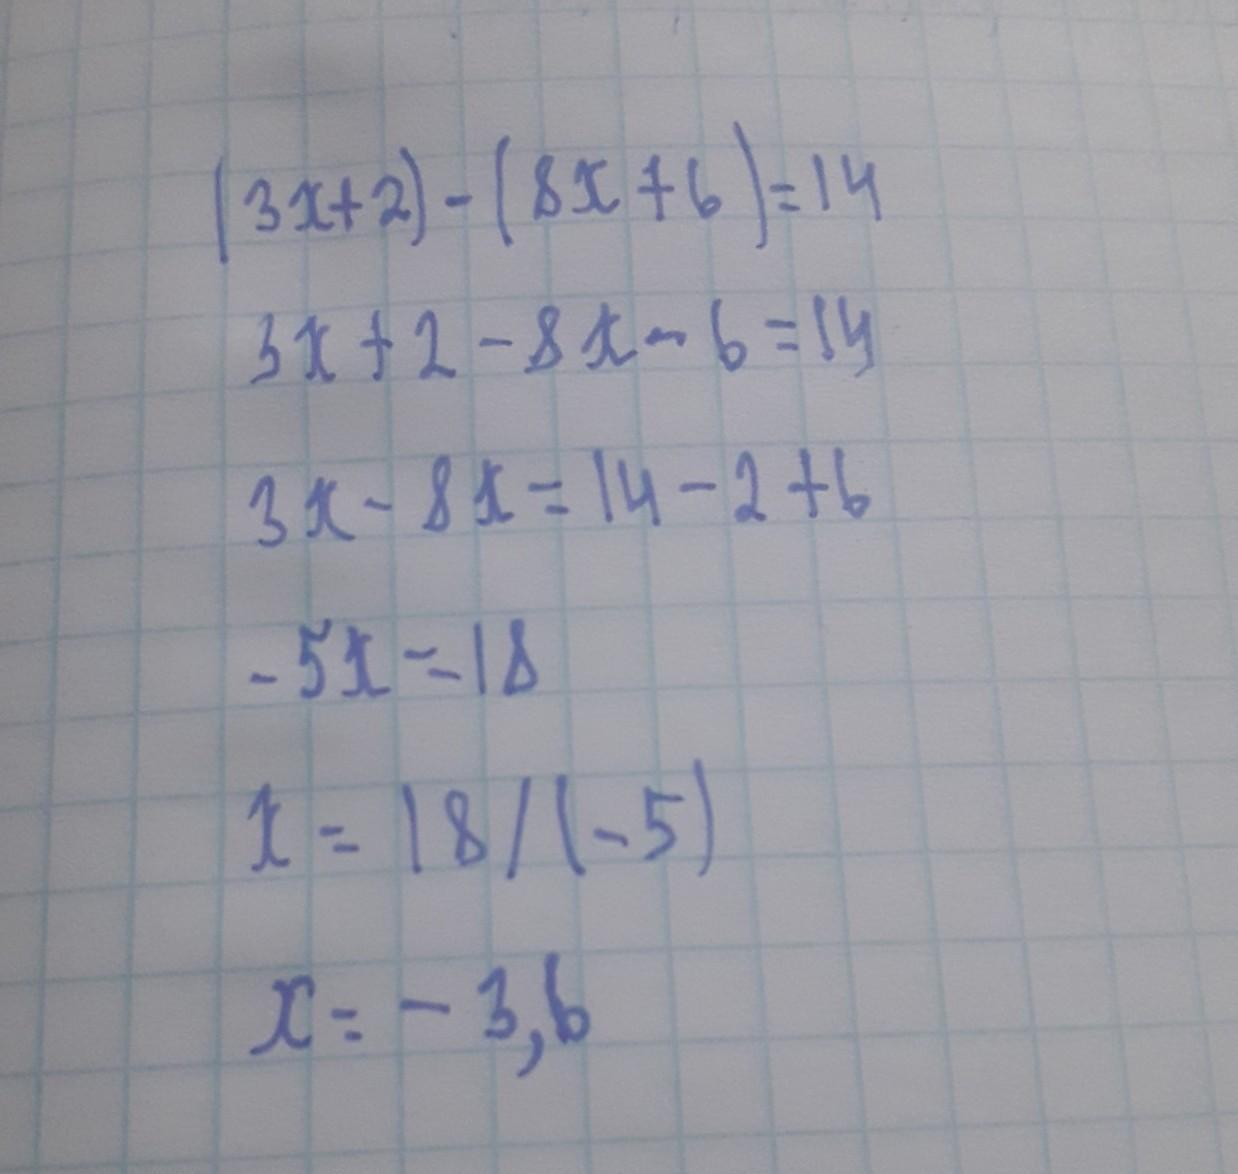 (3x+2)-(8x+6)=14
3x+2-8x-6=14
3x-8x=14-2+6
-5x=18
x=18/(-5)
x=-3,6